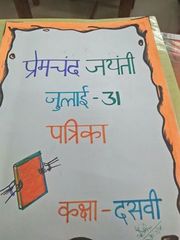 प्रेमचंद जयंती
जुलाई - 31
पत्रिका
कक्षा - दसवी